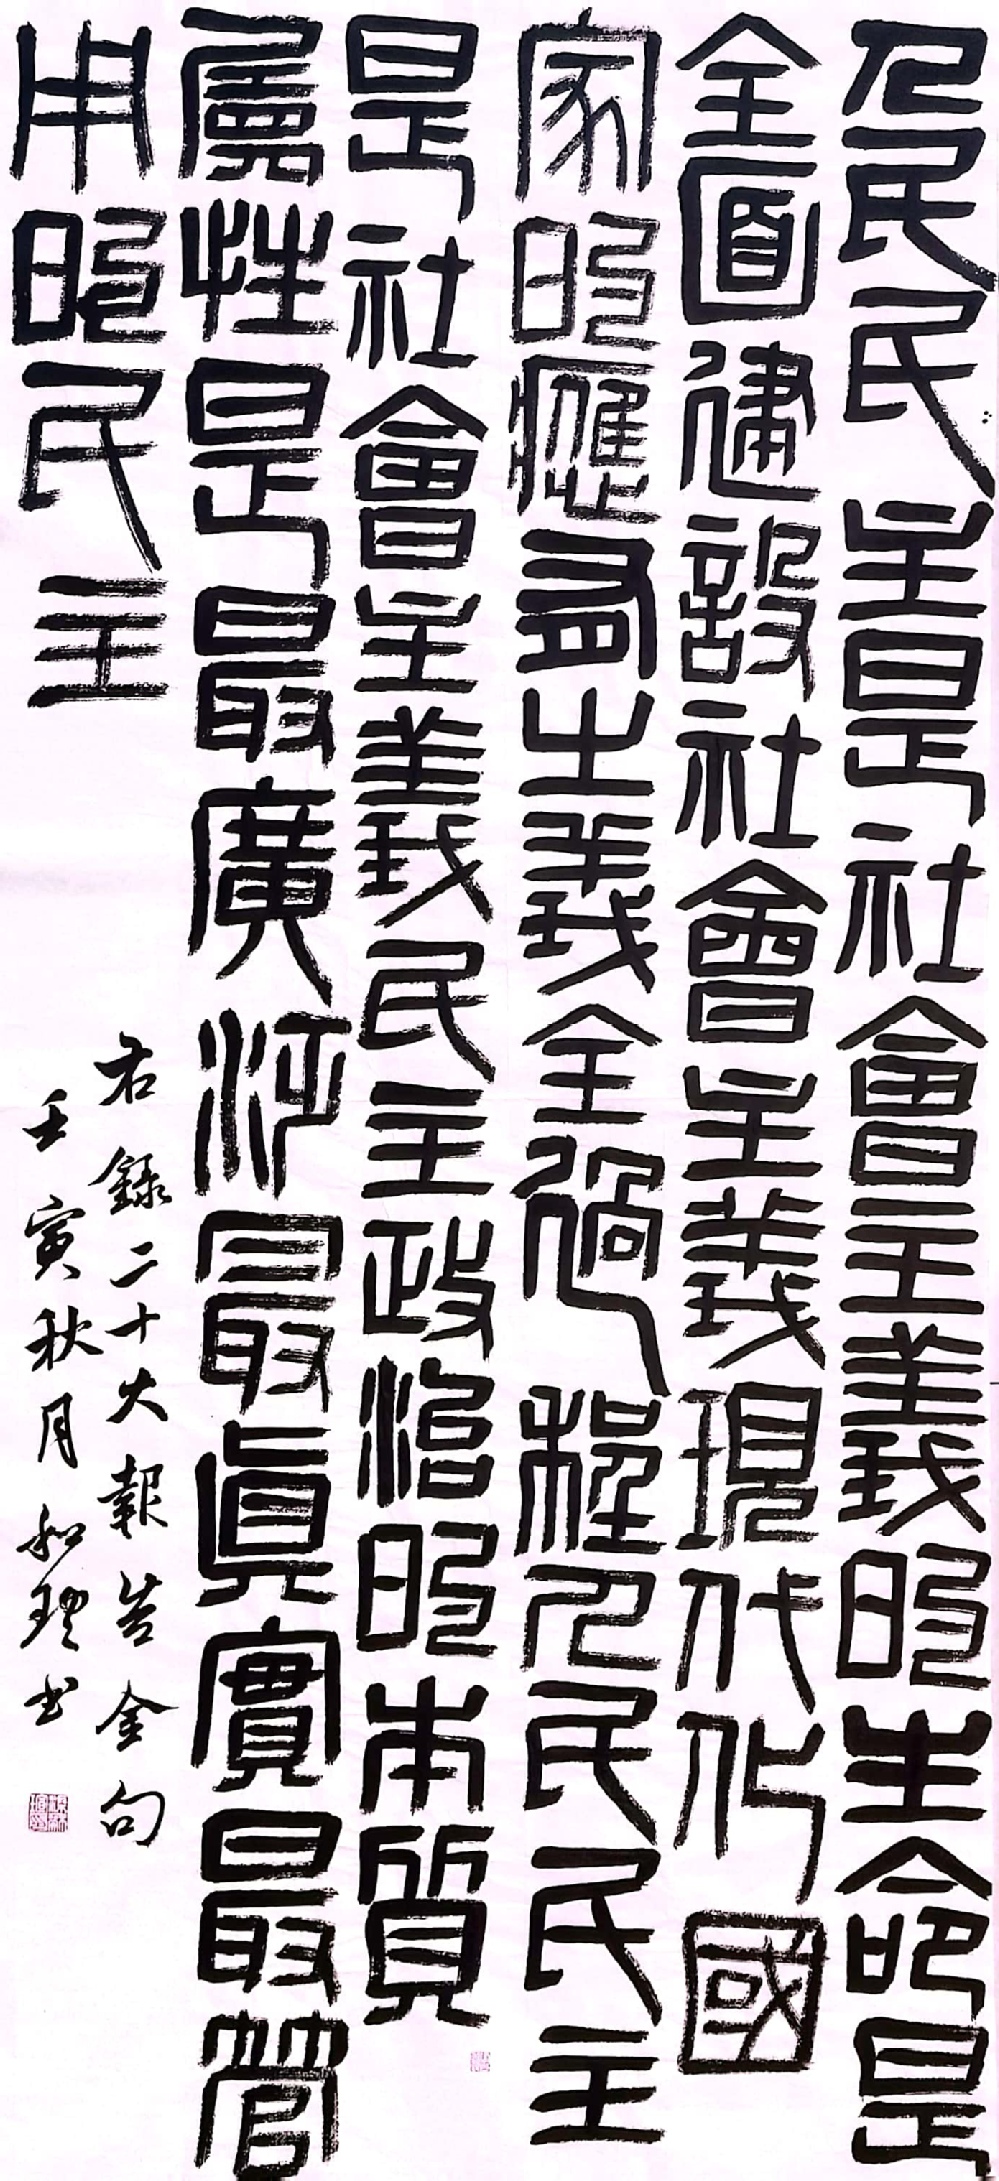 人民民主是社會主義的生命是
全面建設社會主義現代化國
家的應有之義全過程人民民主
是社會主義民主政治的本質
屬性是最廣泛最眞實最管
用的民主
右錄二十大報告金句
壬寅秋月和书